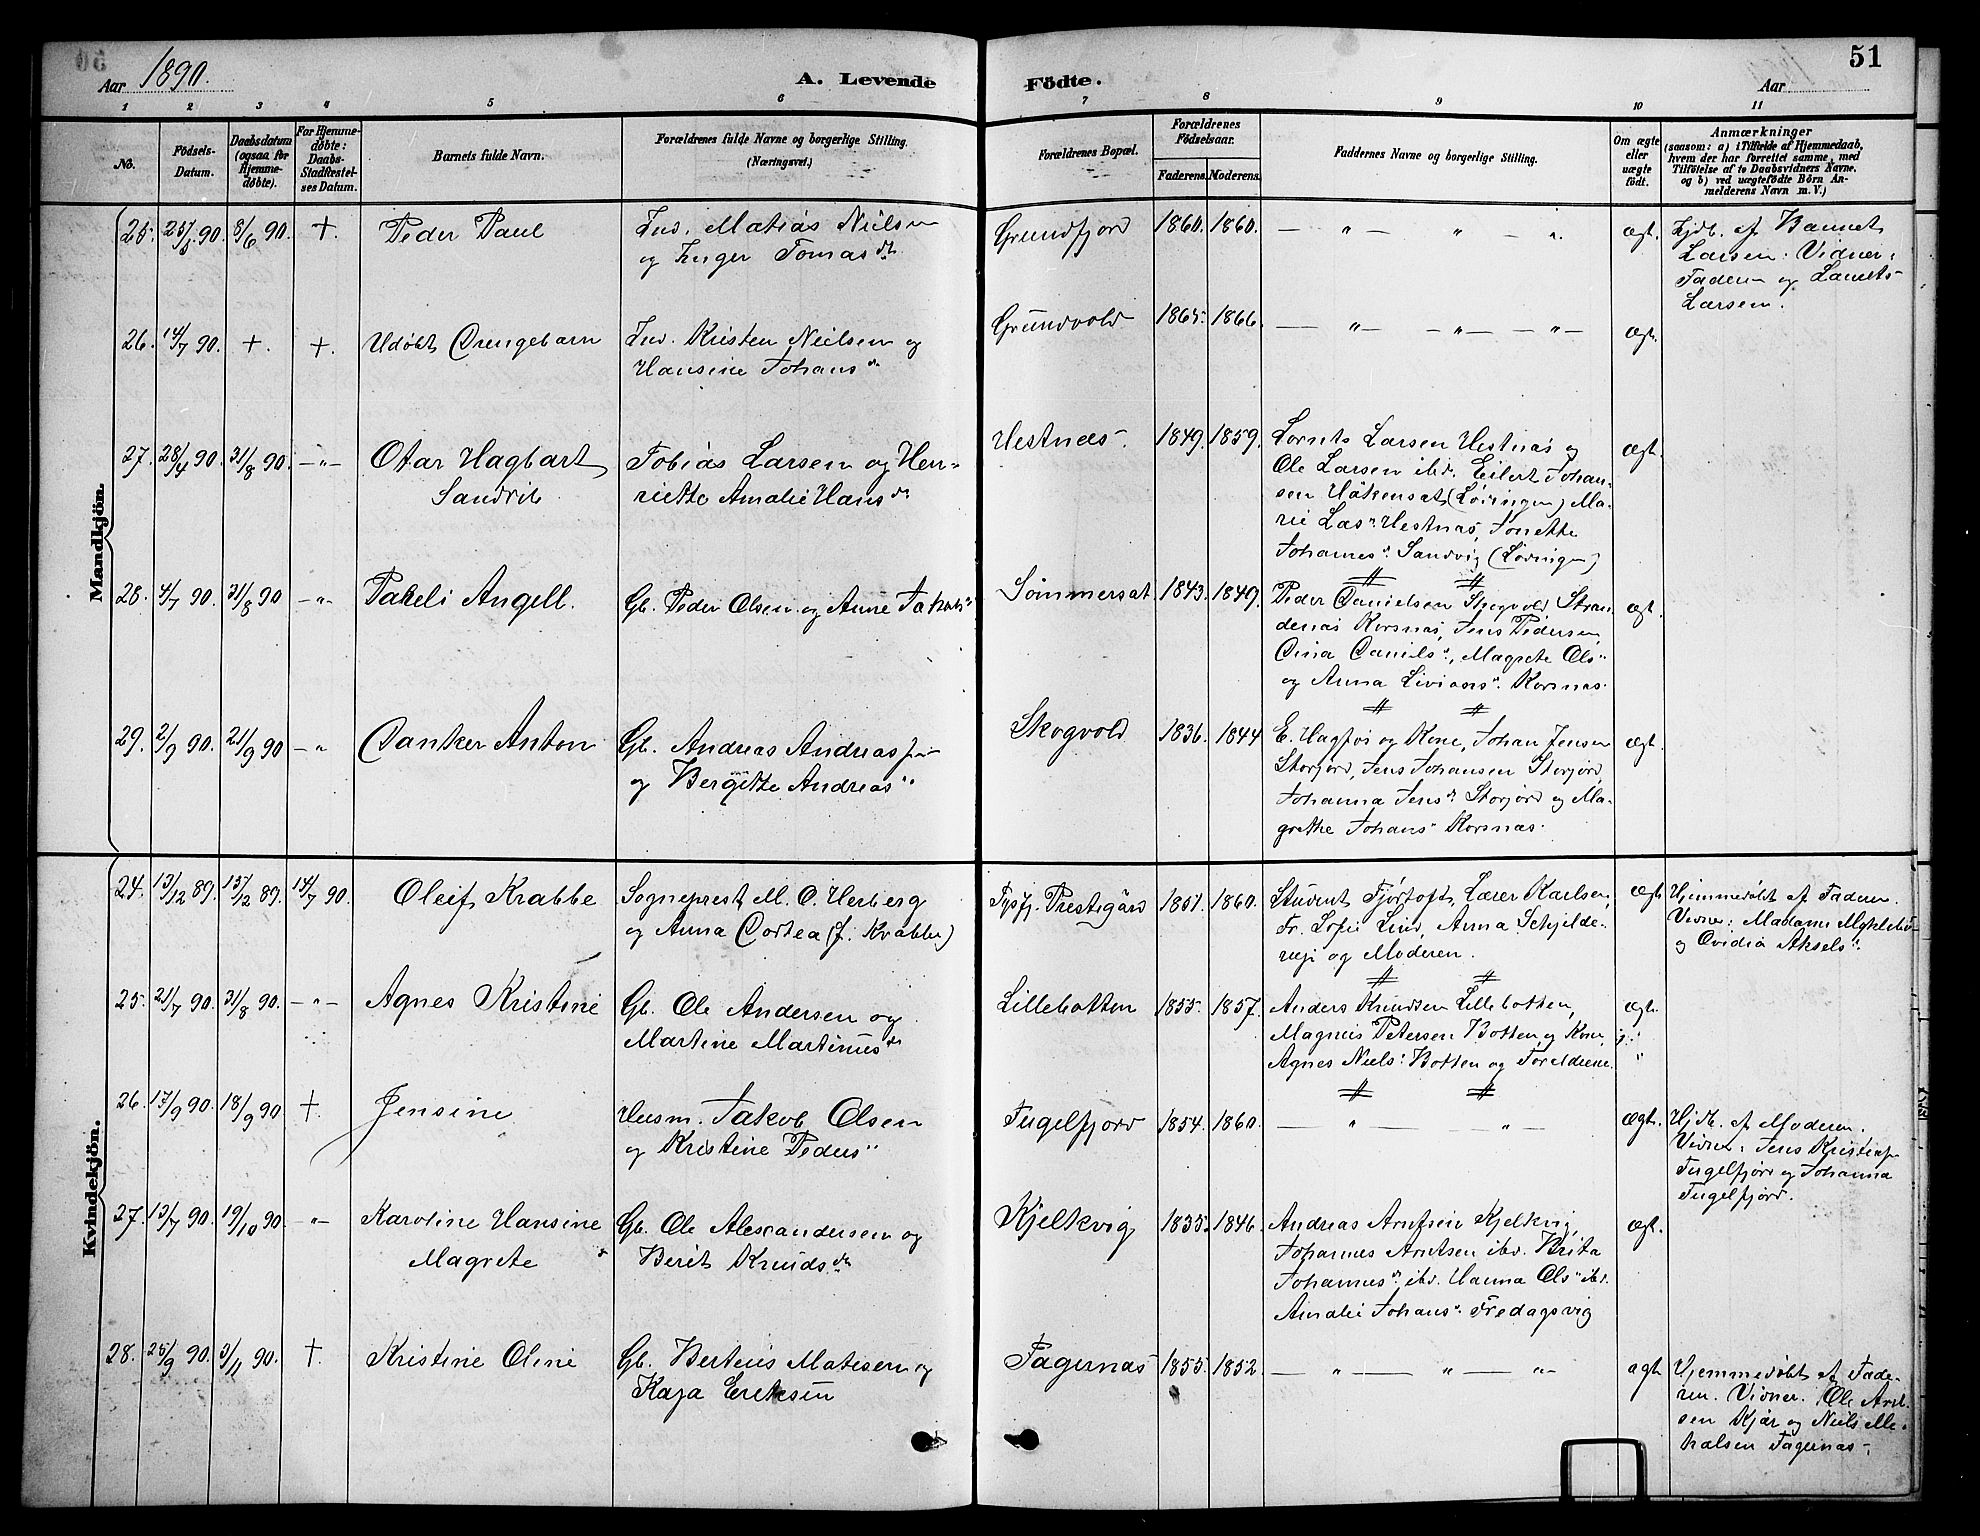 Aar 1890.
A. Levende
Födte.
Aar
51
1 2 3 4 5 6 7 8 9 10 11
No.
Födsels-
Datum.
Daabsdatum
(ogsaa for
Hjemme-
døbte).
For Hjemme-
døbte:
Daabs-
Stadfæstel-
ses Datum.
Barnets fulde Navn.
Forældrenes fulde Navne og borgerlige Stilling.
(Næringsvei.)
Forældrenes Bopæl.
Forældrenes
Födselsaar.
Faderens. Moderens.
Faddernes Navne og borgerlige Stilling.
Om ægte
eller
uægte
født.
Anmærkninger
(saasom: a) i Tilfælde af Hjemmedaab,
hvem der har forrettet samme, med
Tilføielse af to Daabsvidners Navne.
og b) ved uægtefödte Börn An-
melderens Navn m. V.)
Mandkjön.
25. 8/6 90. +. Peder Paul
Ins. Matias Nielsen
og Inger Tomas dtr
Grundfjord 1860. 1860. — " — " — ". ægt.
Hjdb. af Bannet
Larsen: Vidner:
Faderen og Lamets
Larsen.
26. 14/7 90. +. +. Udøbt Drengebarn
Ins. Kristen Nielsen og
Hansine Johans dr
Grundvold 1865. 1866. — " — — " — — " — ægt.
27. 28/4 90. 31/8 90. —"— Otar Hagbart
Sandvik
Tobias Larsen og Hen-
riette Amalie Hans dr
Hestnæs. 1849. 1859.
Larsen Hestnæs og
Ole Larsen ibd. Eilert Johan-
sen Håkensat (Lødingen) Ma-
rie Las" Hestnæs, Jonette
Johannes". Sandvig (Lødingen)
ægt.
28. 4/7 90. 31/8 90 —"— Pakeli Angell.
Gb. Peder Olsen og Anne Jakobs"
Sommersat 1843. 1849.
Peder Danielsen Skogvold Stran-
denæs Korsnæs, Jens Pedersen,
Dina Daniels", Magrete Ols"
og Anna Korsnæs.
ægt.
29. 2/9 90. 21/9 90 —" Danker Anton
Gb. Andreas Andreas
og Bergitte Andreas"
Skogvold 1836. 1844
E. Hagfos og Kone, Johan Jensen
Storjord, Jens Johansen Storjord,
Johanna Jens" Storjord og Ma-
grethe Johans" Korsnæs.
ægt.
Kvindekjön.
24. 13/12 89. 15/12 89. 14/7 90. Oleif Krabbe
Sogneprest M. O. Herberg
og Anna Dortea (f. Krabbe)
Tysfj. Prestegård 1851. 1860.
Student Fjørtoft, Lærer Karlsen,
Fr. Sofie Lind, Anna Schjelde-
rup og Moderen.
ægt
Hjemmedøbt af Faderen.
Vidner: Madame
og Ovidia Aksels".
25. 21/7 90. 31/8 90. —"— Agnes Kristine
Gb. Ole Andersen og
Martine Martinus dr
Lillebotten 1855. 1857.
Anders Knudsen Lillebotten,
Magnus Petersen Botten og Kone,
Agnes Niels" Botten og Foreldrene.
ægt.
26. 17/9 90. 18/9 90 +. Jensine
Husm. Jakob Olsen
og Kristine Peders"
Fugelfjord 1854. 1860. — " — — " — ægt.
Hjdb. af Moderen.
Vidner: Jens
Fugelfjord og Johanna
Fugelfjord.
27. 13/7 90. 19/10 90. —"— Karoline Hansine
Magrete
Gb. Ole Alexandersen og
Berit Knuds dr
Kjelkvig 1835. 1846.
Andreas Arntsen Kjelkvig,
Johannes Arntsen ibd. Brita
Johannes" ibd. Hanna Ols" ibd.
Amalie Johans". Fredagsvig
ægt.
28. 25/9 90. 3/11 90. +. Kristine Oline
Gb. Berteus Matisen og
Kaja Eriksen
Fagernæs 1855. 1852. — " — " — "— ægt
Hjemmedøbt af Fade-
ren. Vidner. Ole Arnt-
sen Kjær og Niels Mi-
kalsen Fagernæs.